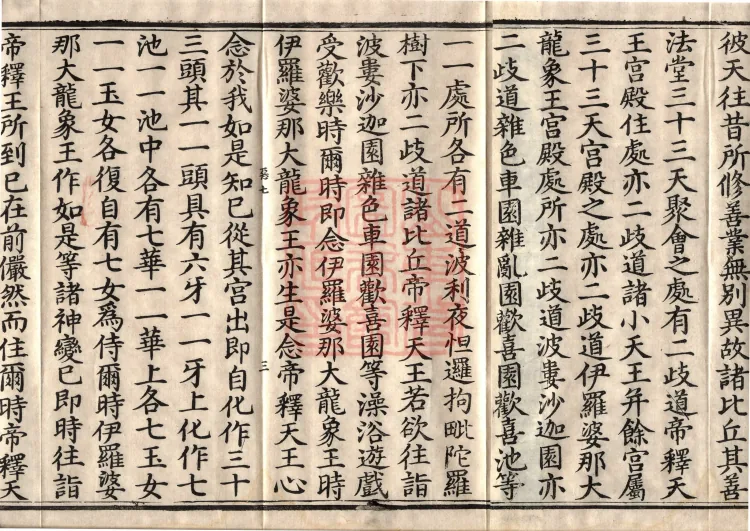 彼天往昔所修善業無別異故諸比丘其善
法堂三十三天聚會之處有二歧道帝釋天
王宮殿住處亦二歧道諸小天王并餘宮屬
三十三天宮殿之處亦二歧道伊羅婆那大
龍象王宮殿處所亦二歧道波婁沙迦園亦
二歧道雜色車園雜亂園歡喜園歡喜池等
一一處所各有二道波利夜怛邏拘毗陀羅
樹下亦二歧道諸比丘帝釋天王若欲往詣
波婁沙迦園雜色車園歡喜園等澡浴遊戲
受歡樂時爾時即念伊羅婆那大龍象王時
伊羅婆那大龍象王亦生是念帝釋天王心
第七 三
念於我如是知已從其宮出即自化作三十
三頭其一一頭具有六牙一一牙上化作七
池一一池中各有七華一一華上各七玉女
一一玉女各復自有七女為侍爾時伊羅婆
那大龍象王作如是等諸神變已即時往詣
帝釋王所到已在前儼然而住爾時帝釋天